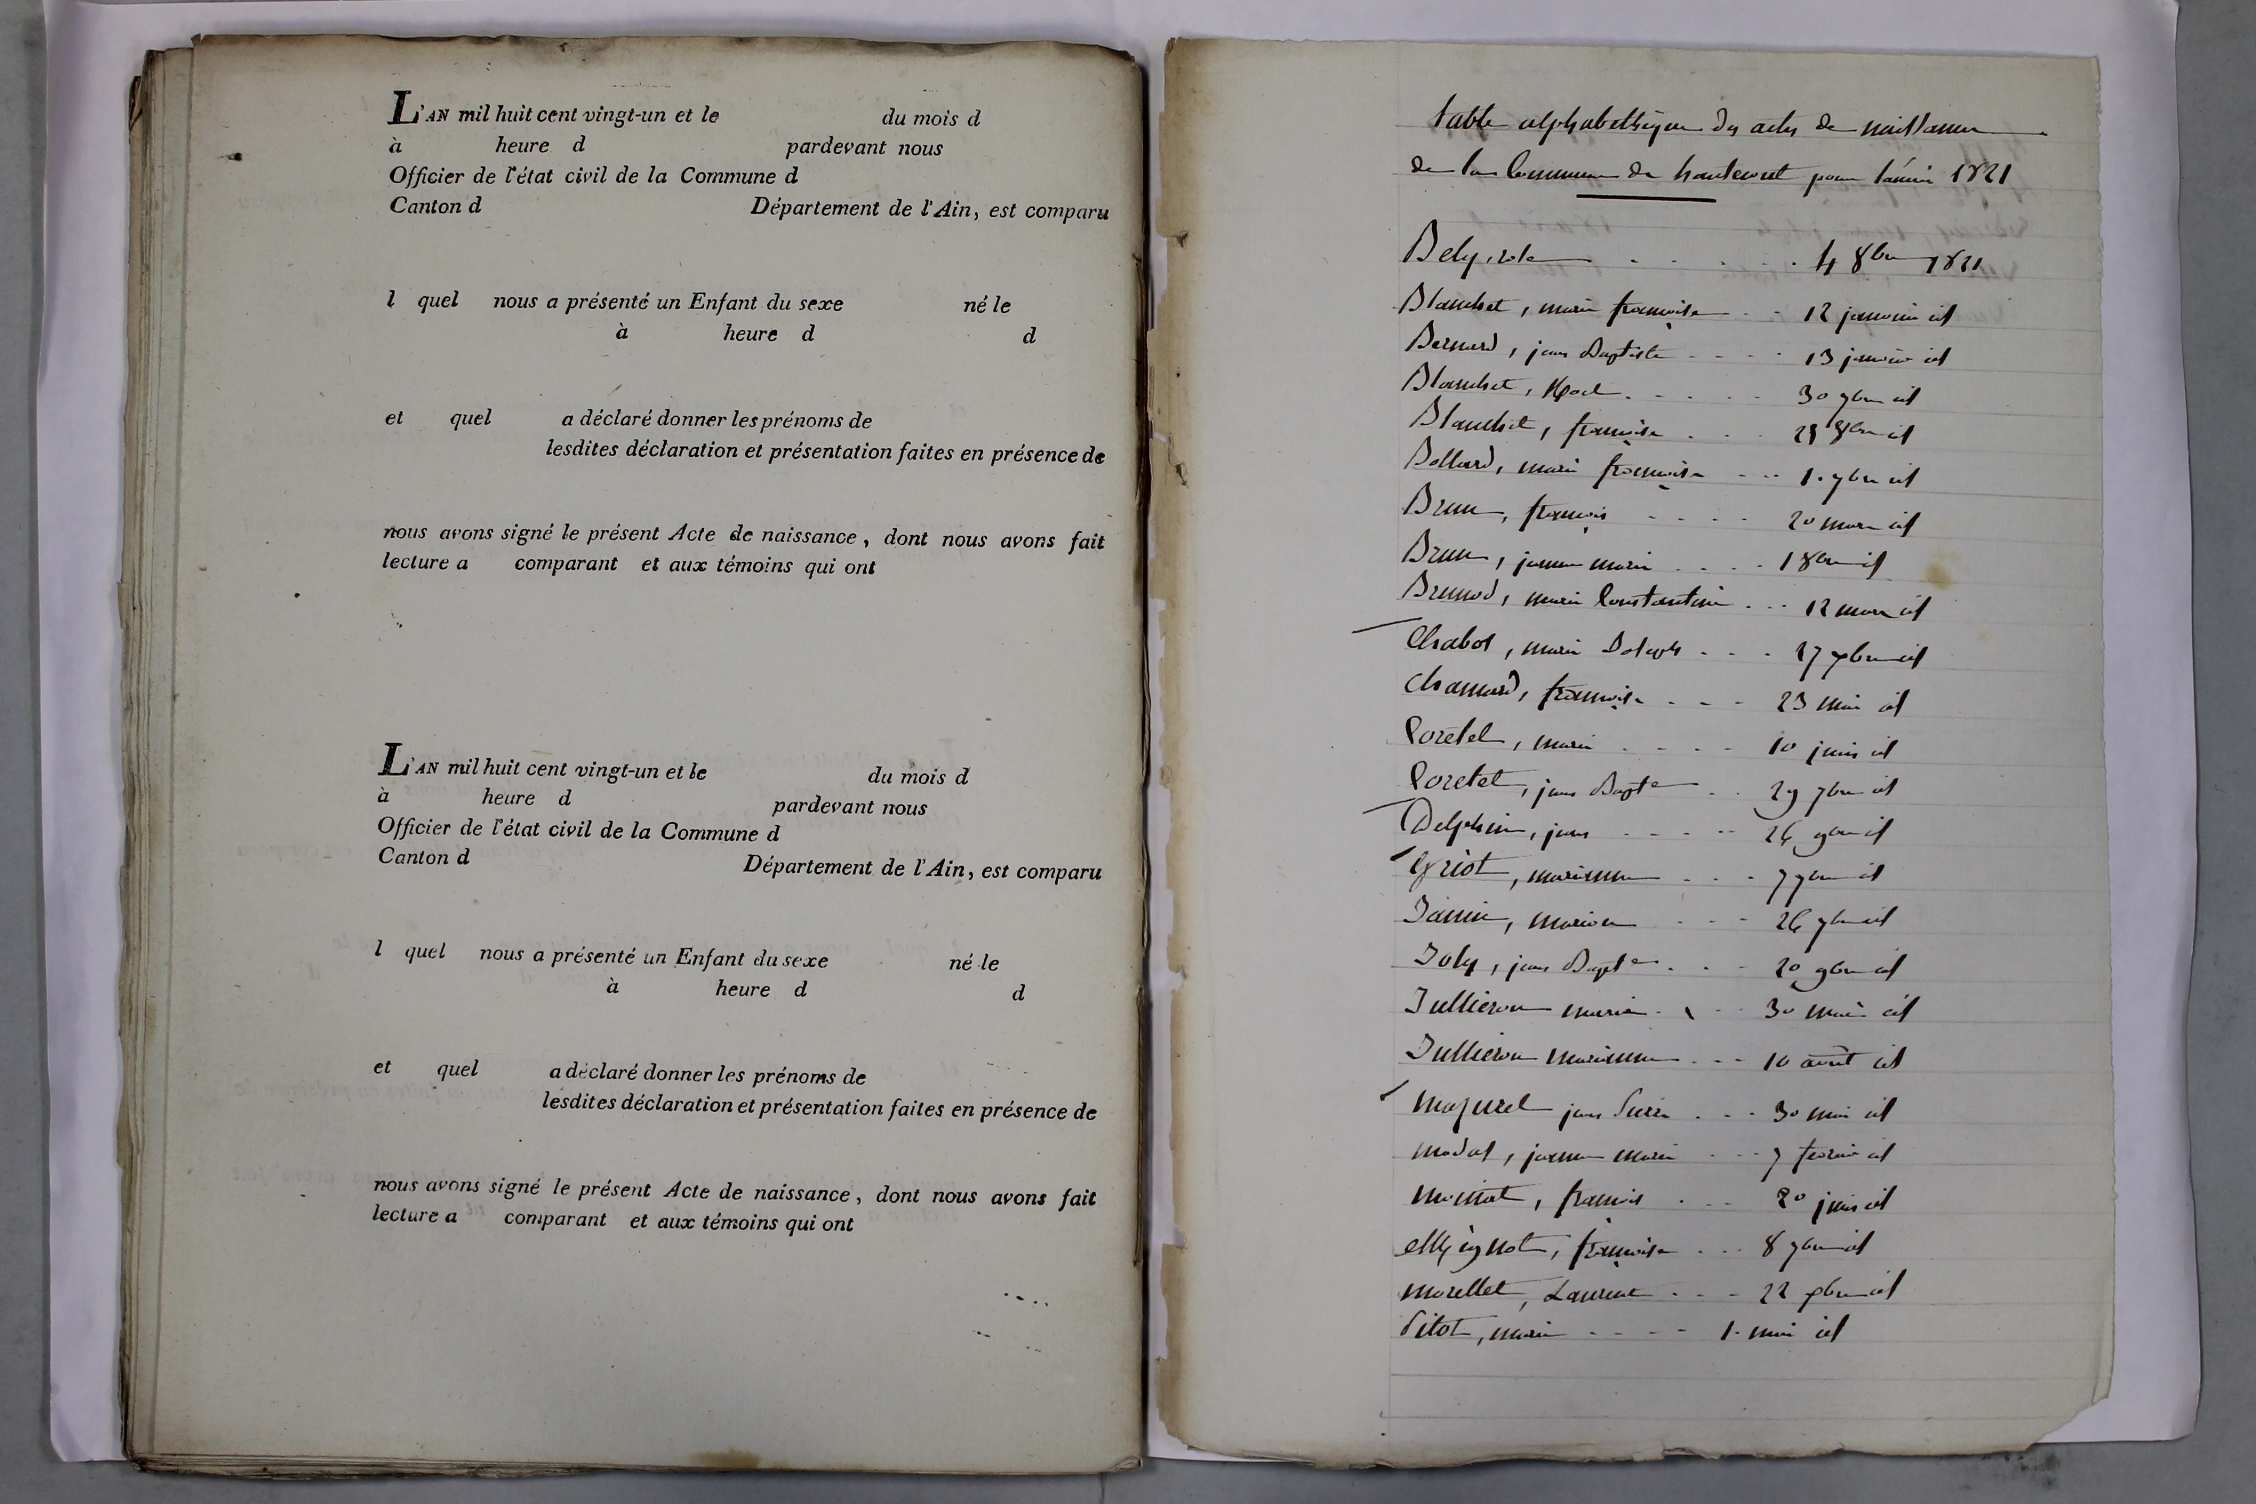 L'AN mil huit cent vingt-un et le du mois d
à heure d pardevant nous
Officier de l'état civil de la Commune d
Canton d Département de l'Ain, est comparu
l quel nous a présenté un Enfant du sexe né le
à heure d d
et quel a déclaré donner les prénoms de
lesdites déclaration et présentation faites en présence de
nous avons signé le présent Acte de naissance, dont nous avons fait
lecture a comparant et aux témoins qui ont
L'AN mil huit cent vingt-un et le du mois d
à heure d pardevant nous
Officier de l'état civil de la Commune d
Canton d Département de l'Ain, est comparu
l quel nous a présenté un Enfant du sexe né le
à heure d d
et quel a déclaré donner les prénoms de
lesdites déclaration et présentation faites en présence de
nous avons signé le présent Acte de naissance, dont nous avons fait
lecture a comparant et aux témoins qui ont
table alphabethique des actes de naissance
de la Commune de hautecourt pour l'année 1821
4 8bre 1821
Blanchet, marie françoise - - 12 janvier id
Bernard, jean Baptiste - - - - 13 janvier id
Blanchet, - - - - - 30 7bre id
Blanchet, françoise - - - 8bre id
marie françoise - - - 1. 7bre id
Brun, françois - - - - 20 mars id
Brun, jeanne marie - - - - 1 8bre id
Brunod, marie Constantine - - - 12 mars id
Chabot, marie - - - 17 id
Chanard, françoise - - - 23 mai id
Coretet, marie - - - - 10 juin id
Coretet, jean Bapte - - 29 7bre id
Delphin, jean - - - - - 26 9bre id
Griot, marianne - - - 7 7bre id
Janin, marion - - - 26 7bre id
Joly, jean Bapte - - - 20 9bre id
Jullieron marie - - - 30 mai id
Jullieron marianne - - - 10 août id
Mazurel jean Pierre - - - 30 mai id
jeanne marie - - - 7 fevrier id
françois - - - 20 juin id
Mignot, françoise - - - 8 7bre id
Morellet, Laurent - - - 22 id
Pitot, marie - - - - 1. mai id